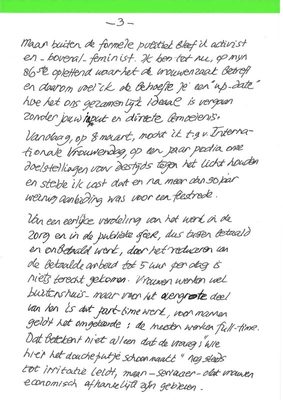 - 3 -
Maar buiten de formele politiek bleef ik activist
en - bovenal - feminist. Ik ben tot nu, op mijn
86ste oplettend waar het de vrouwenzaak betreft
en daarom voel ik de behoefte je een "up-date"
hoe het ons gezamenlijk ideaal is vergaan
zonder jouw input en directe bemoeienis.
Vandaag, op 8 maart, mocht ik t.g.v. Interna-
tionale Vrouwendag, op een paar podia onze
doelstellingen voor destijds tegen het licht houden
en stelde ik vast dat er na meer dan 50 jaar
weinig aanleiding was voor een feestrede.
Van een eerlijke verdeling van het werk in de
zorg en in de publieke sfeer, dus tussen betaald
en onbetaald werk, door het reduceren van
de betaalde arbeid tot 5 uur per dag is
niets terecht gekomen. Vrouwen werken wel
buitenshuis - maar voor het overgrote deel
van hen is dat part-time werk, voor mannen
geldt het omgekeerde: de meesten werken full-time.
Dat betekent niet alleen dat de vraag: "wie
hier het doucheputje schoonmaakt" nog steeds
tot irritatie leidt, maar - serieuzer - dat vrouwen
economisch afhankelijk zijn gebleven.